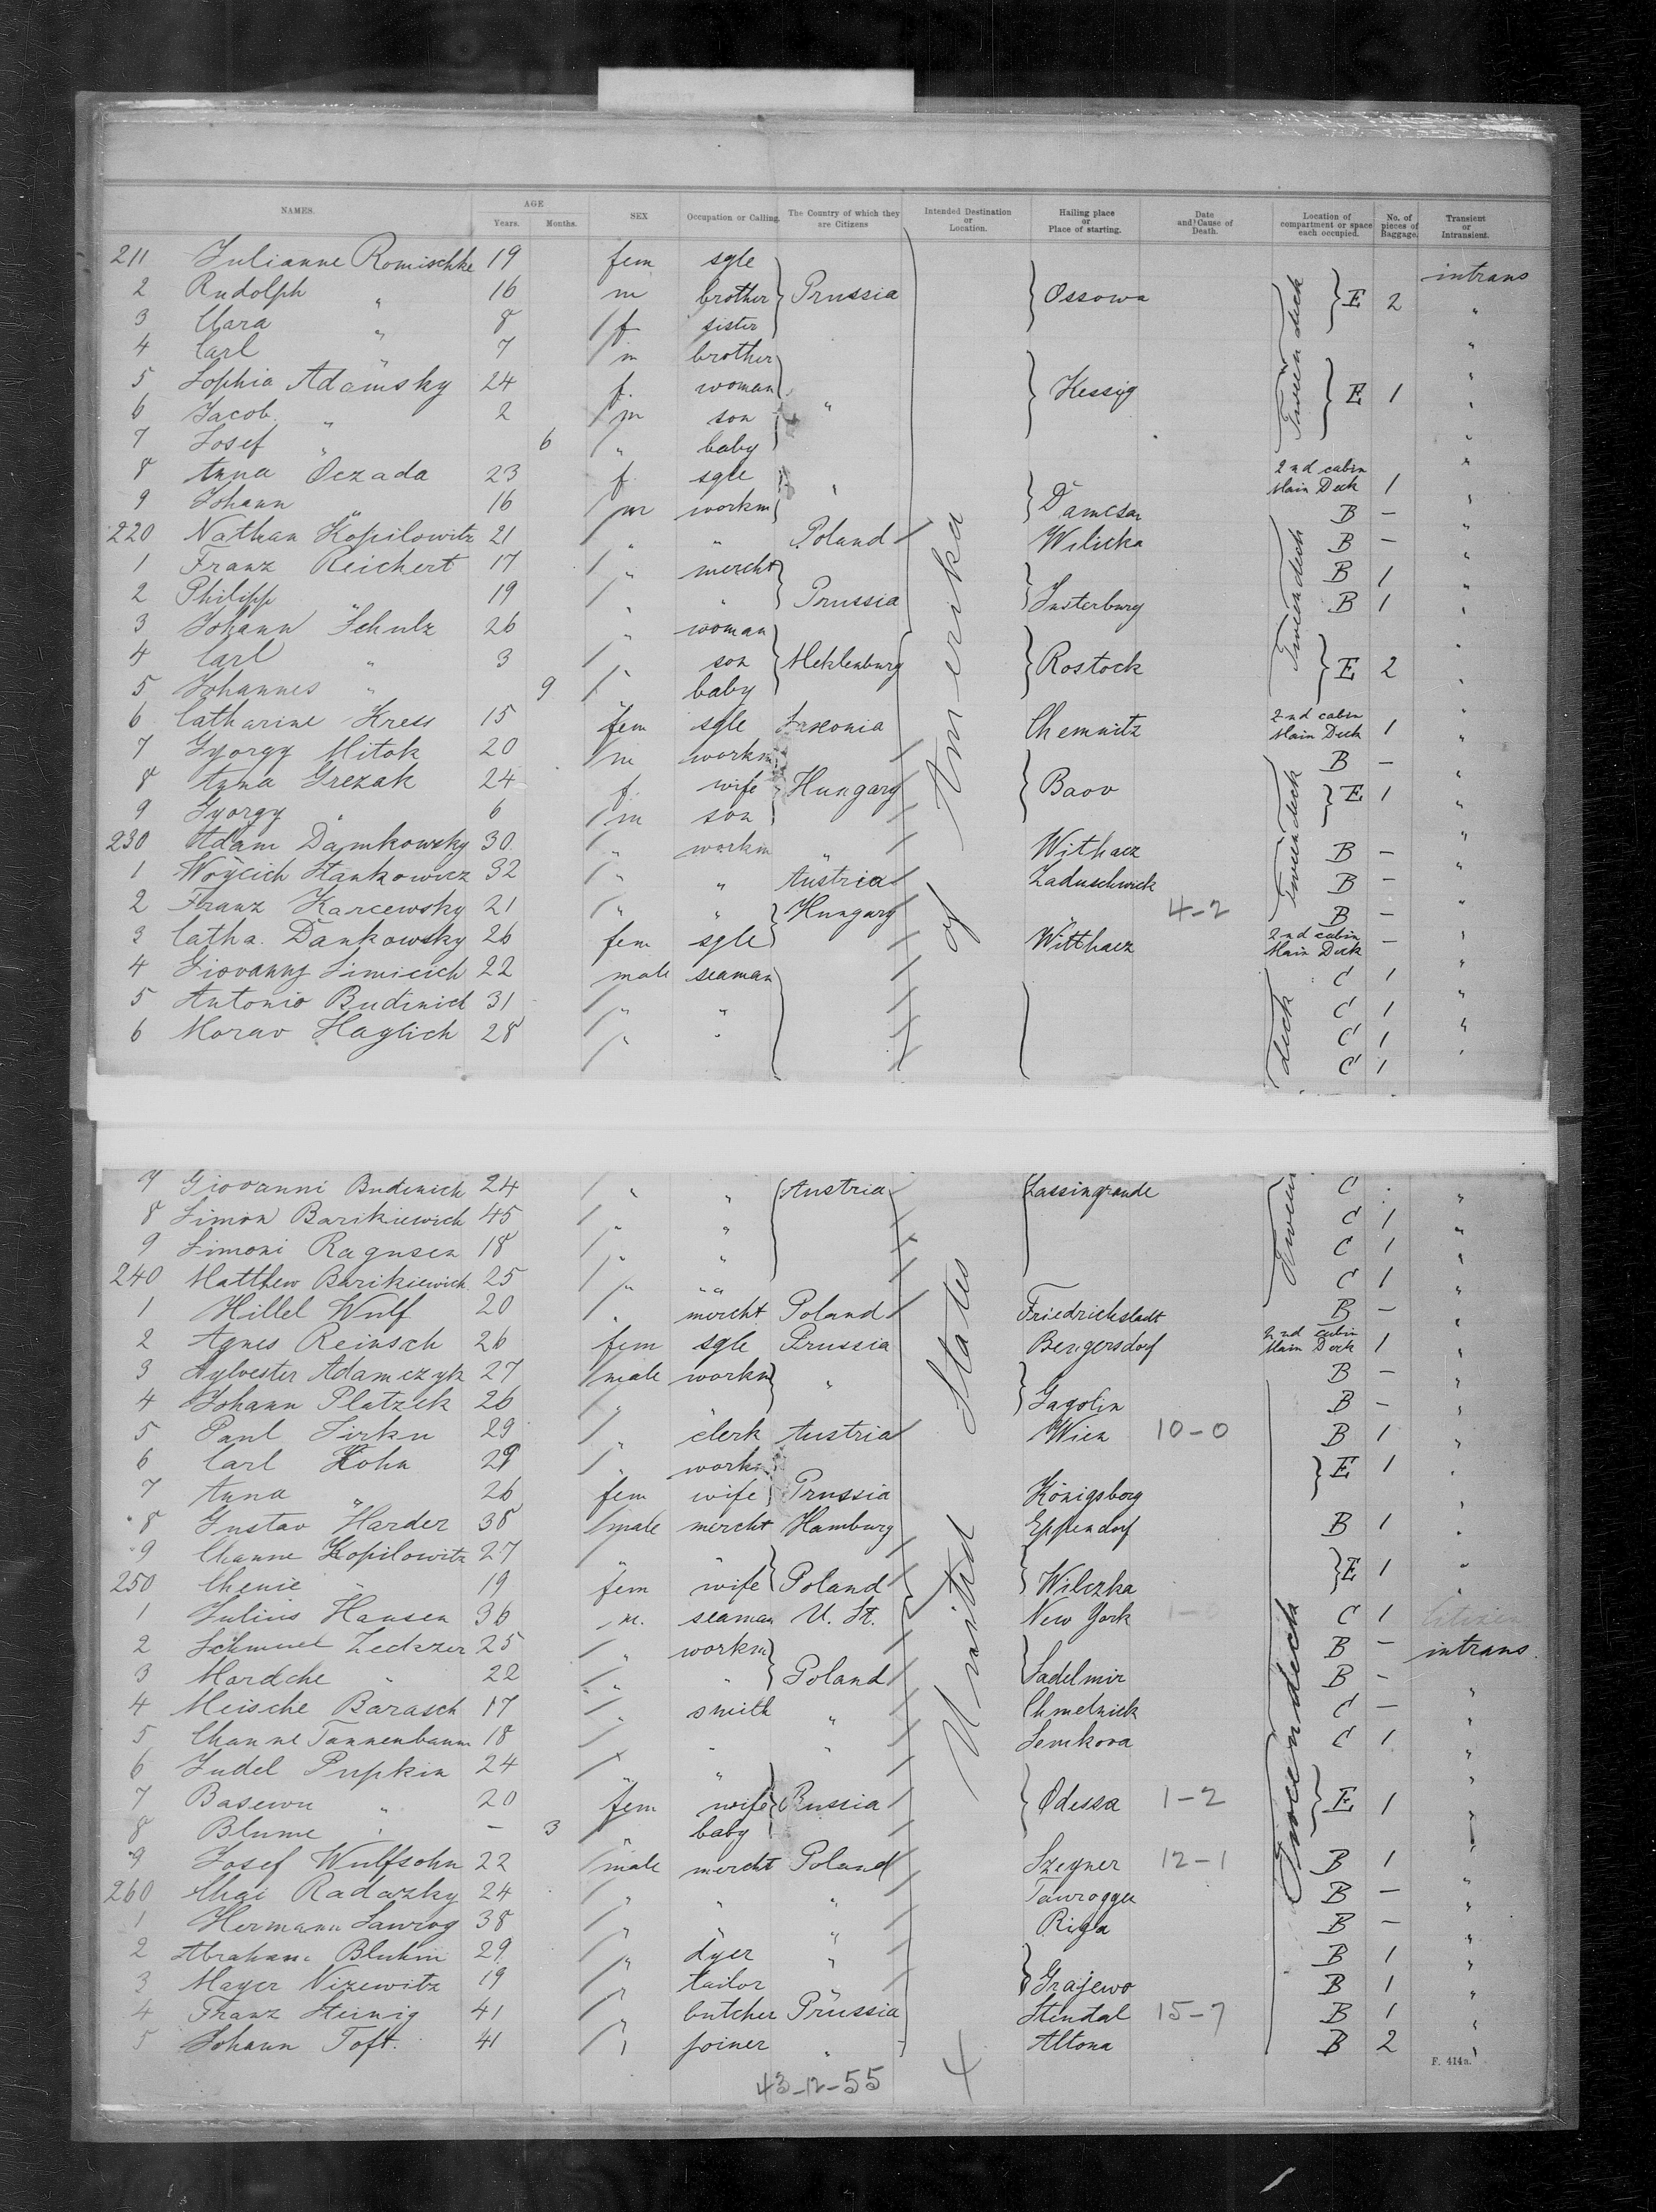 NAMES. AGE Years. Months. SEX Occupation or Calling. The Country of which they are Citizens Intended Destination or Location. Hailing place or Place of starting. Date and Cause of Death. Location of compartment or space each occupied. No. of pieces of Baggage. Transient or Intransient.
211 Julianne Romischke 19 fem sgle intrans
2 Rudolph " 16 m brother Prussia Ossowa E 2 "
3 Clara " 8 f sister "
4 Carl " 7 m brother "
5 Sophia Adamsky 24 f. woman " Kessig E 1 "
6 Jacob " 2 m son "
7 Josef " 6 " baby "
8 Anna Oczada 23 f. sgle " 2nd cabin Main Deck 1 "
9 Johann " 16 m workm Damcsan B – "
220 Nathan Kopilowitz 21 " " Poland Wilicka B – "
1 Franz Reichert 17 " mercht B 1 "
2 Philipp " 19 " " Prussia Insterburg B 1 "
3 Johann Schulz 26 " woman "
4 Carl " 3 " son Meklenburg Rostock E 2 "
5 Johannes " 9 " baby "
6 Catharine Kress 15 fem sgle Saxonia Chemnitz 2nd cabin Main Deck 1 "
7 Gyorgy Mitok 20 m workm B – "
8 Anna Grezak 24 f. wife Hungary Baov E 1 "
9 Gyorgy " 6 m son "
230 Adam Damkowsky 30 " workm " Withaez B – "
1 Woycich Stankowicz 32 " " Austria Zaduschwick B – "
2 Franz Karcewsky 21 " " Hungary 4-2 B – "
3 Catha. Dankowsky 26 fem sgle Witthaez 2nd cabin Main Deck – "
4 Giovanny Simicich 22 male seaman C 1 "
5 Antonio Budinich 31 " " C 1 "
6 Morav Haglich 28 " " C 1 "
C 1
Tween deck
of Amerika
deck
7 Giovanni Budinich 24 " " Austria Lassingrande C "
8 Simon Barikiewich 45 " " C 1 "
9 Simoni Ragusen 18 " " C 1 "
240 Matthew Barikiewich 25 " " C 1 "
1 Hillel Wulf 20 " mercht Poland Friedrichstadt B – "
2 Agnes Reinsch 26 fem sgle Prussia Bengersdorf 2nd cabin Main Deck 1 "
3 Sylvester Adamczyk 27 male workm " B – "
4 Johann Platzek 26 " " Gagolin B – "
5 Paul Zirku 29 " clerk Austria Wien 10-0 B 1 "
6 Carl Kohn 29 " workm E 1 "
7 Anna " 26 fem wife Prussia Königsberg "
8 Gustav Harder 38 male mercht Hamburg Eppendorf B 1 "
9 Channe Kopilowitz 27 " " E 1 "
250 Chenie " 19 fem wife Poland Wilczka "
1 Julius Hansen 36 m. seaman U. St. New York C 1 Citizen
2 Schmuel Zedezer 25 " workm B – intrans.
3 Mordche " 22 " " Poland Sadelmir B –
4 Meische Barasch 17 " smith " Chmelnick C – "
5 Channe Tannenbaum 18 " " " Semkova C 1 "
6 Judel Pupkin 24 " " "
7 Basewu " 20 fem wife Russia Odessa 1-2 E 1 "
8 Blume " – 3 " baby "
9 Josef Wulfsohn 22 male mercht Poland Szegner 12-1 B 1 "
260 Chai Radazky 24 " " " Tauroggen B – "
1 Hermann Sawrog 38 " " " Riga B – "
2 Abraham Bluhm 29 " dyer " B 1 "
3 Mayer Nizewitz 19 " tailor " Grajewo B 1 "
4 Franz Steinig 41 " butcher Prussia Stendal 15-7 B 1 "
5 Johann Toft. 41 " joiner " Altona B 2 "
Tween
Tweendeck
United States
43-12-55
F. 414a.